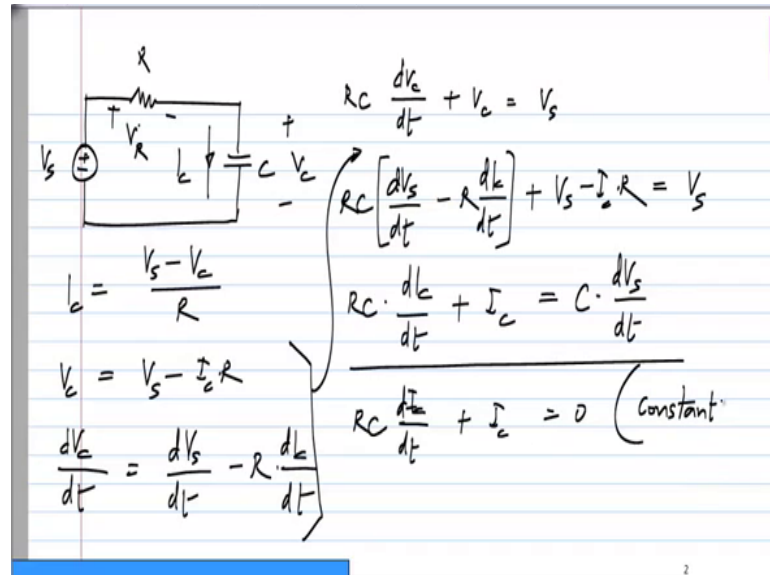 R
+ V_R -
V_S
I_C
C
+
V_C
-
I_C = (V_S - V_C) / R
V_C = V_S - I_C · R
dV_C/dt = dV_S/dt - R · dI_C/dt
RC dV_C/dt + V_C = V_S
RC [dV_S/dt - R dI_C/dt] + V_S - I_C · R = V_S
RC · dI_C/dt + I_C = C · dV_S/dt
RC dI_C/dt + I_C = 0 (Constant
2